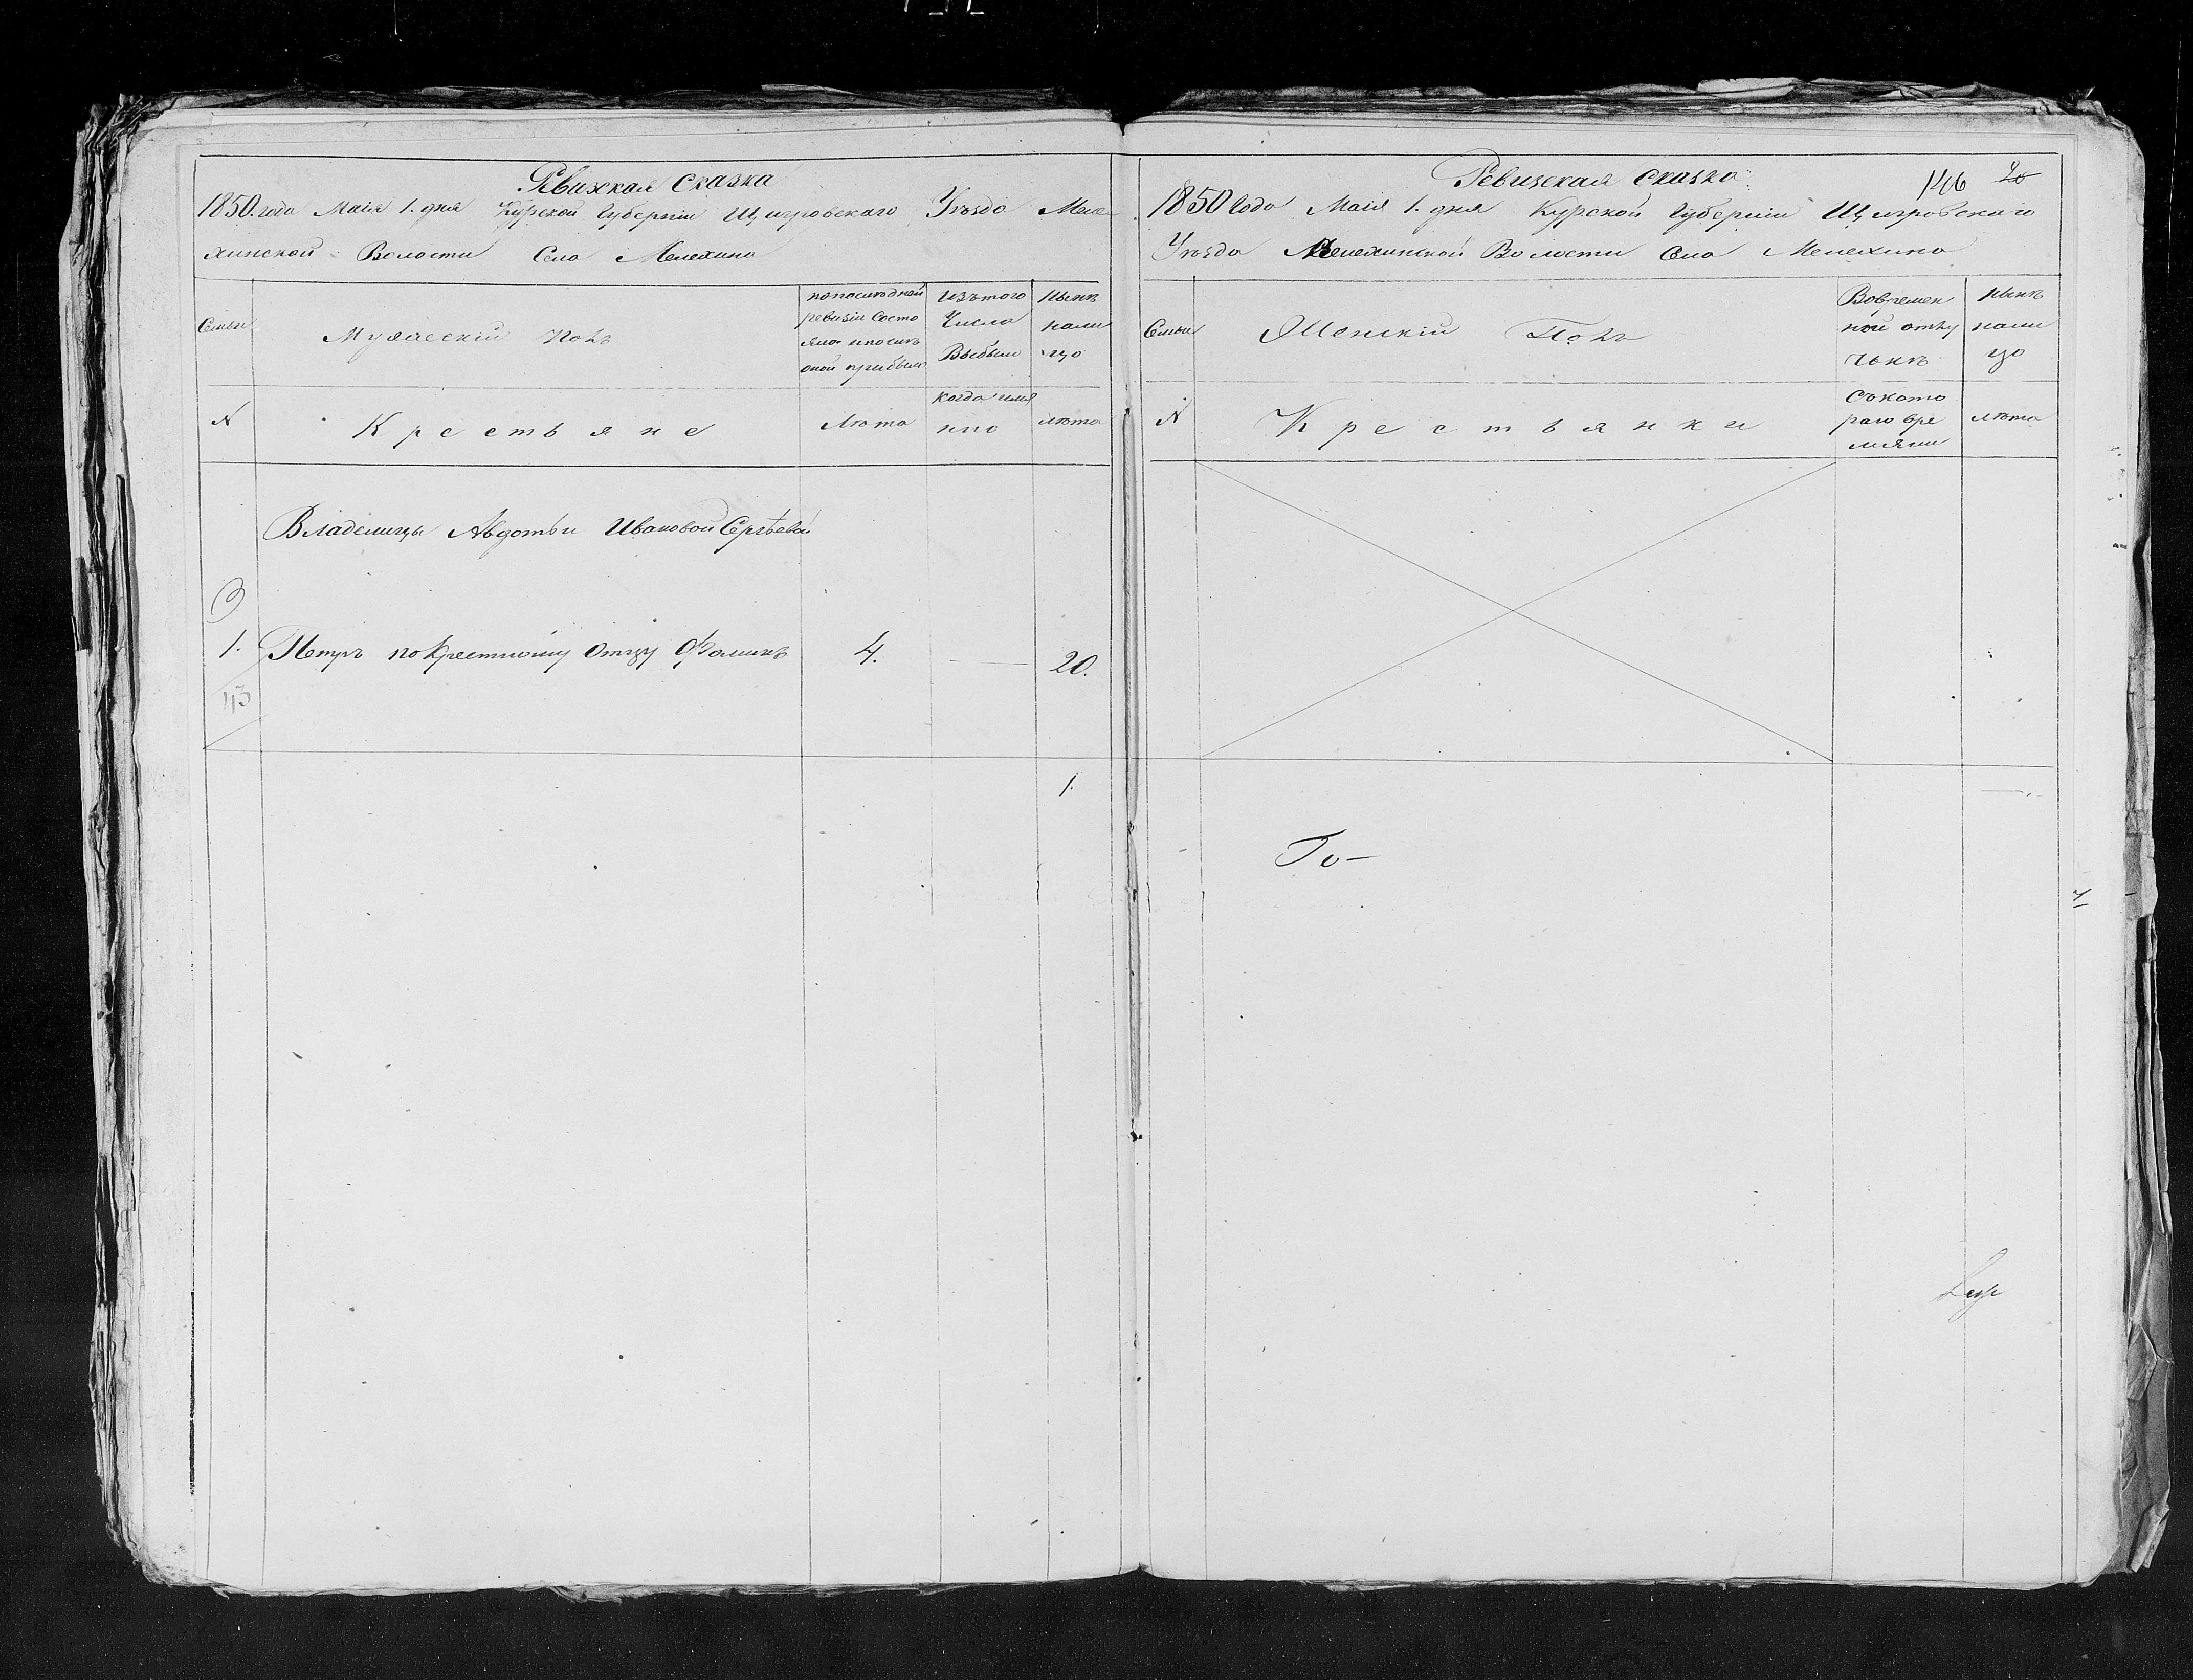 Ревизкая Сказка
1850. года Маія 1. дня Курской Губерніи Щигровскаго Уѣзда Меле
хинской Волости Села Мелехина
Семьи
Мужескій Полъ
попоследней
ревизіи Состо
яло ипослѣ
оной прибыло
Изътого
Числа
Выбыло
Нынѣ
нали
цо
№
Крестьяне
Лѣта
когда имя
нно
лѣта
Владелицы Авдотьи Ивановой Сергѣевой
1. Петръ покрестному Отцу Фоминъ 4. — 20.
43
1.
Ревизская Сказка
146 20
1850 Года Маія 1. дня Курской Губерніи Щигровскаго
Уѣзда Мелехинской Волости Села Мелехина
Семьи
Женскій Полъ
Вовремен
ной отлу
чькѣ
Нынѣ
нали
цо
№
Крестьянки
Съкото
раго вре
мяни
лѣта
То-